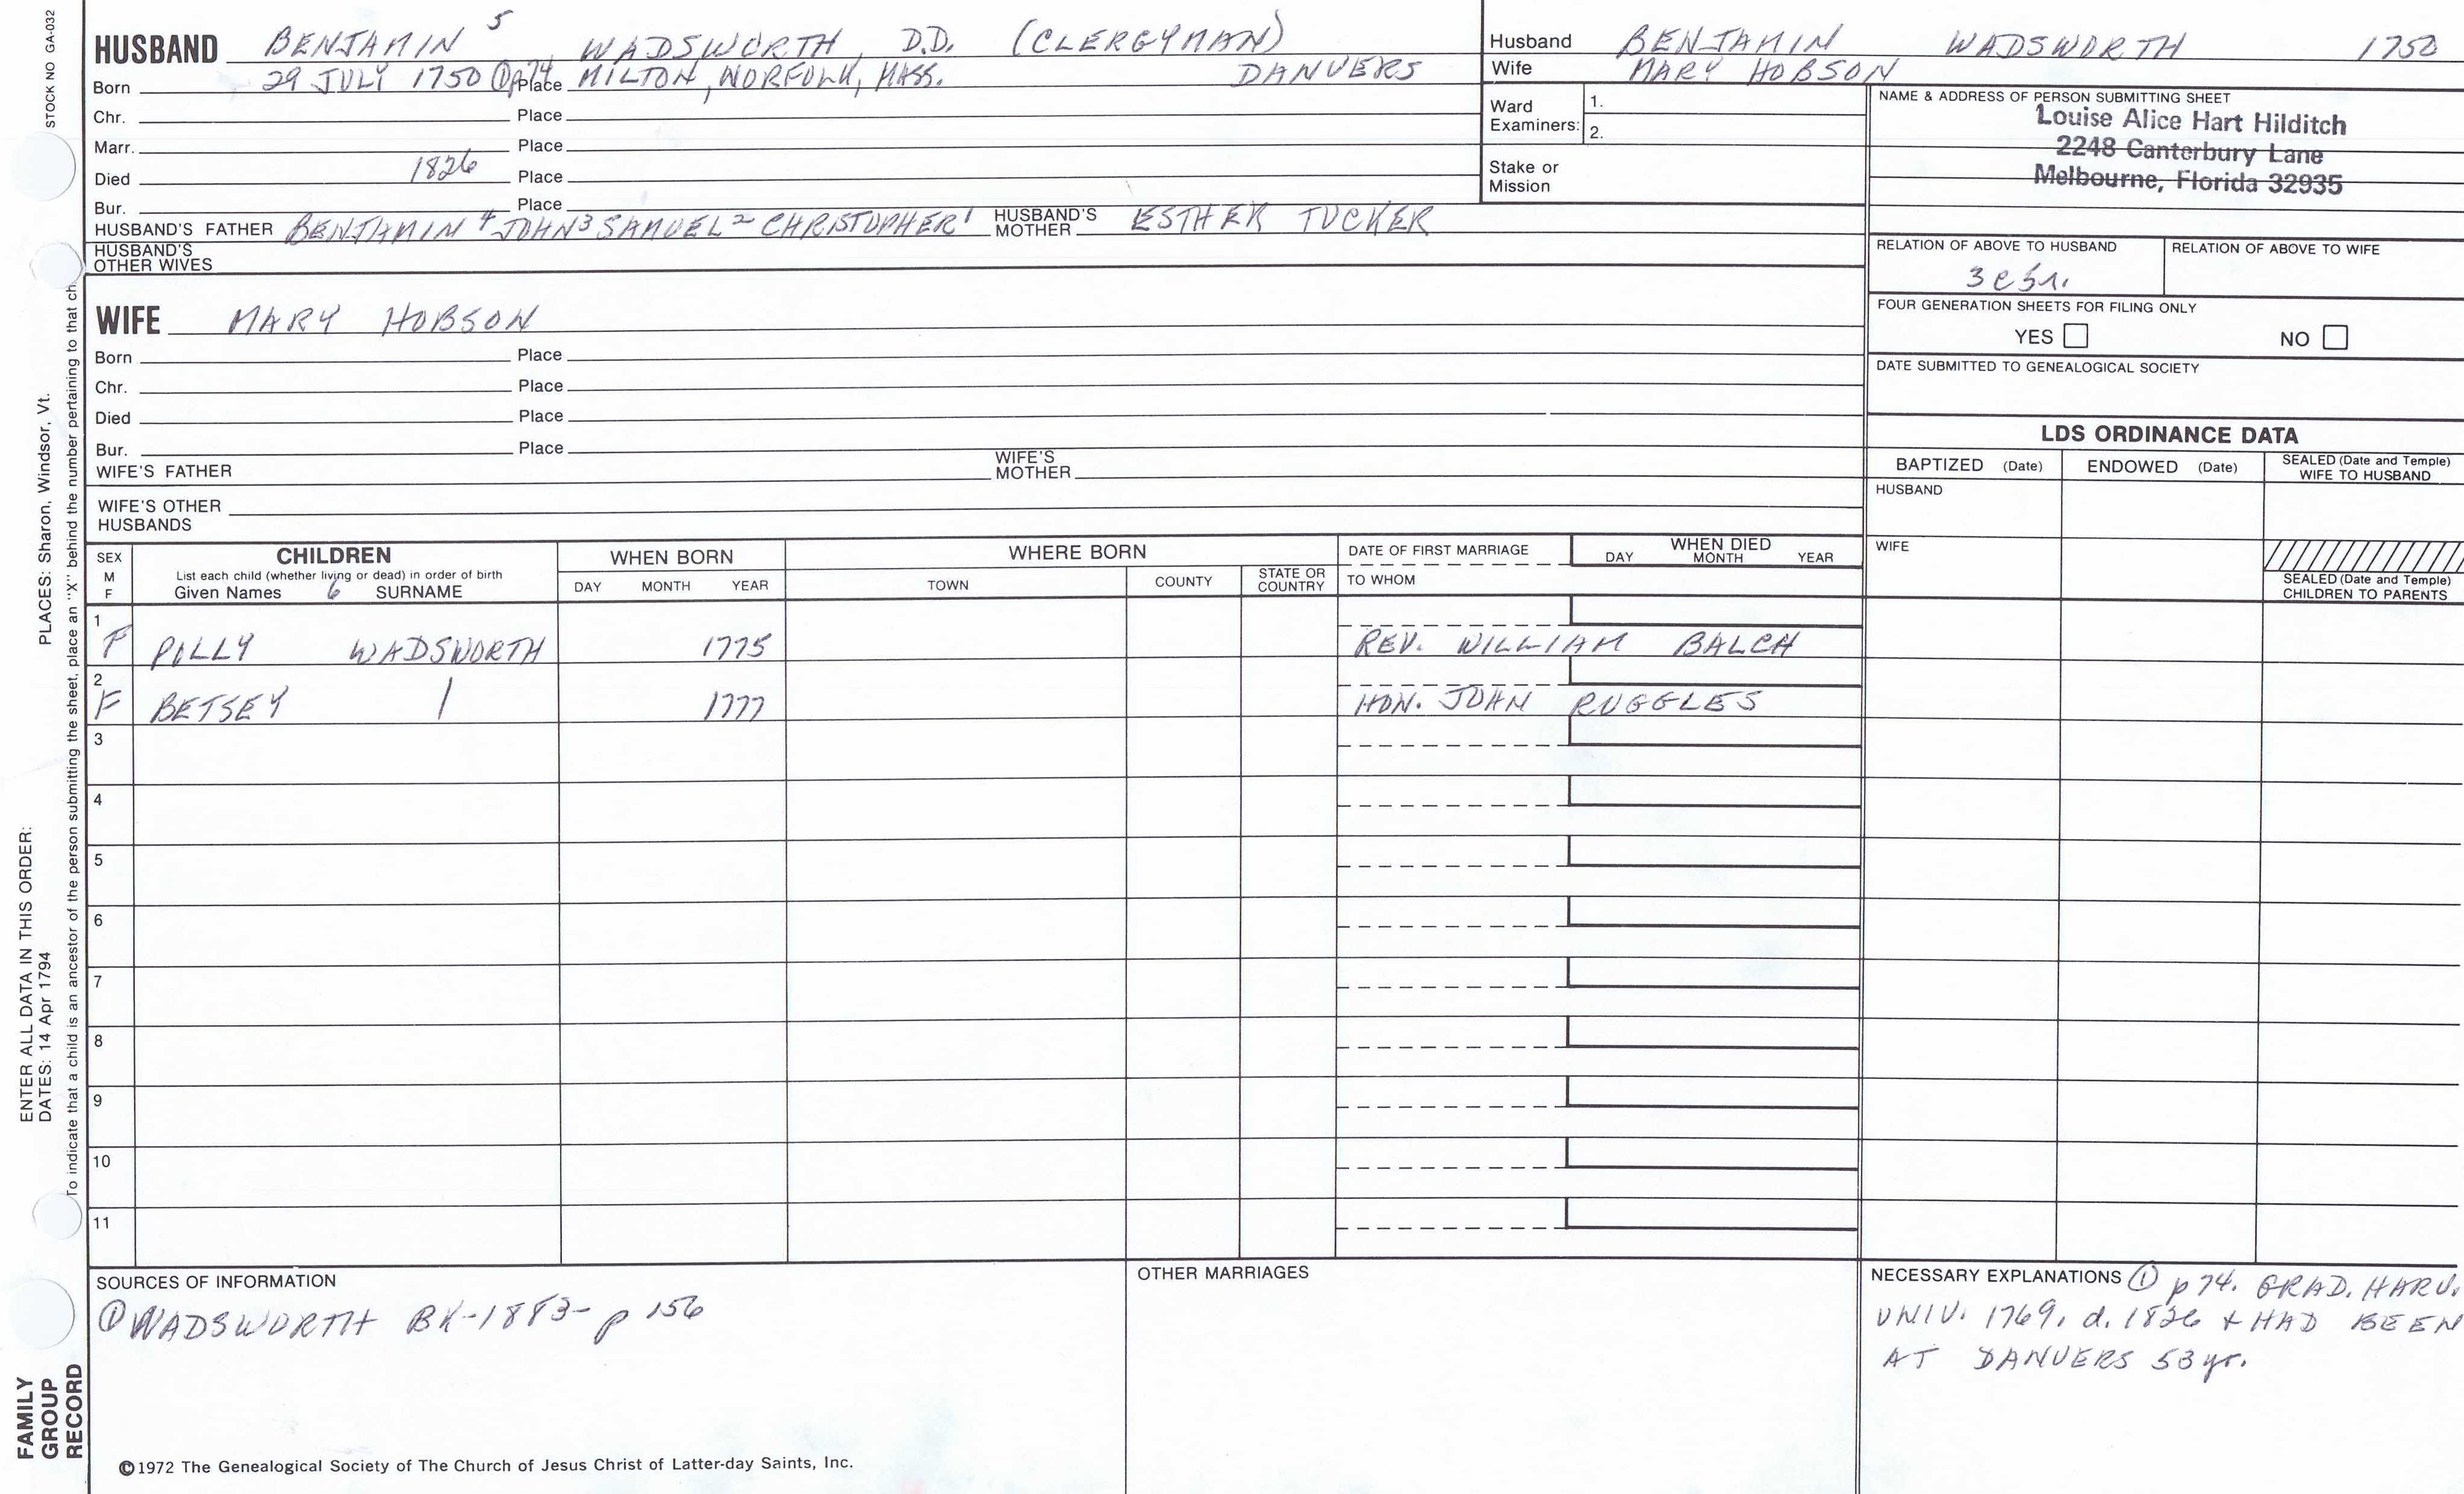 STOCK NO GA-032
HUSBAND BENJAMIN 5 WADSWORTH, D.D. (CLERGYMAN)
Born 29 JULY 1750 ① p74 Place MILTON, NORFOLK, MASS. DANVERS
Chr. Place
Marr. Place
Died 1826 Place
Bur. Place
HUSBAND'S FATHER BENJAMIN 4 JOHN 3 SAMUEL 2 CHRISTOPHER 1 HUSBAND'S MOTHER ESTHER TUCKER
HUSBAND'S OTHER WIVES
Husband BENJAMIN WADSWORTH 1750
Wife MARY HOBSON
Ward Examiners: 1.
2.
Stake or Mission
NAME & ADDRESS OF PERSON SUBMITTING SHEET
Louise Alice Hart Hilditch
2248 Canterbury Lane
Melbourne, Florida 32935
RELATION OF ABOVE TO HUSBAND
RELATION OF ABOVE TO WIFE
FOUR GENERATION SHEETS FOR FILING ONLY
YES NO
DATE SUBMITTED TO GENEALOGICAL SOCIETY
WIFE MARY HOBSON
Born Place
Chr. Place
Died Place
Bur. Place
WIFE'S FATHER WIFE'S MOTHER
WIFE'S OTHER HUSBANDS
LDS ORDINANCE DATA
BAPTIZED (Date) ENDOWED (Date) SEALED (Date and Temple) WIFE TO HUSBAND
HUSBAND
WIFE
SEALED (Date and Temple) CHILDREN TO PARENTS
SEX M F
CHILDREN
List each child (whether living or dead) in order of birth
Given Names 6 SURNAME
WHEN BORN
DAY MONTH YEAR
WHERE BORN
TOWN COUNTY STATE OR COUNTRY
DATE OF FIRST MARRIAGE
TO WHOM
WHEN DIED
DAY MONTH YEAR
1 F POLLY WADSWORTH 1775 REV. WILLIAM BALCH
2 F BETSEY | 1777 HON. JOHN RUGGLES
3
4
5
6
7
8
9
10
11
SOURCES OF INFORMATION
① WADSWORTH BK-1883- p 156
OTHER MARRIAGES
NECESSARY EXPLANATIONS ① p 74. GRAD. HARV.
UNIV. 1769, d. 1826 & HAD BEEN
AT DANVERS 53 yr.
©1972 The Genealogical Society of The Church of Jesus Christ of Latter-day Saints, Inc.
FAMILY GROUP RECORD
ENTER ALL DATA IN THIS ORDER:
DATES: 14 Apr 1794 PLACES: Sharon, Windsor, Vt.
To indicate that a child is an ancestor of the person submitting the sheet, place an "X" behind the number pertaining to that ch